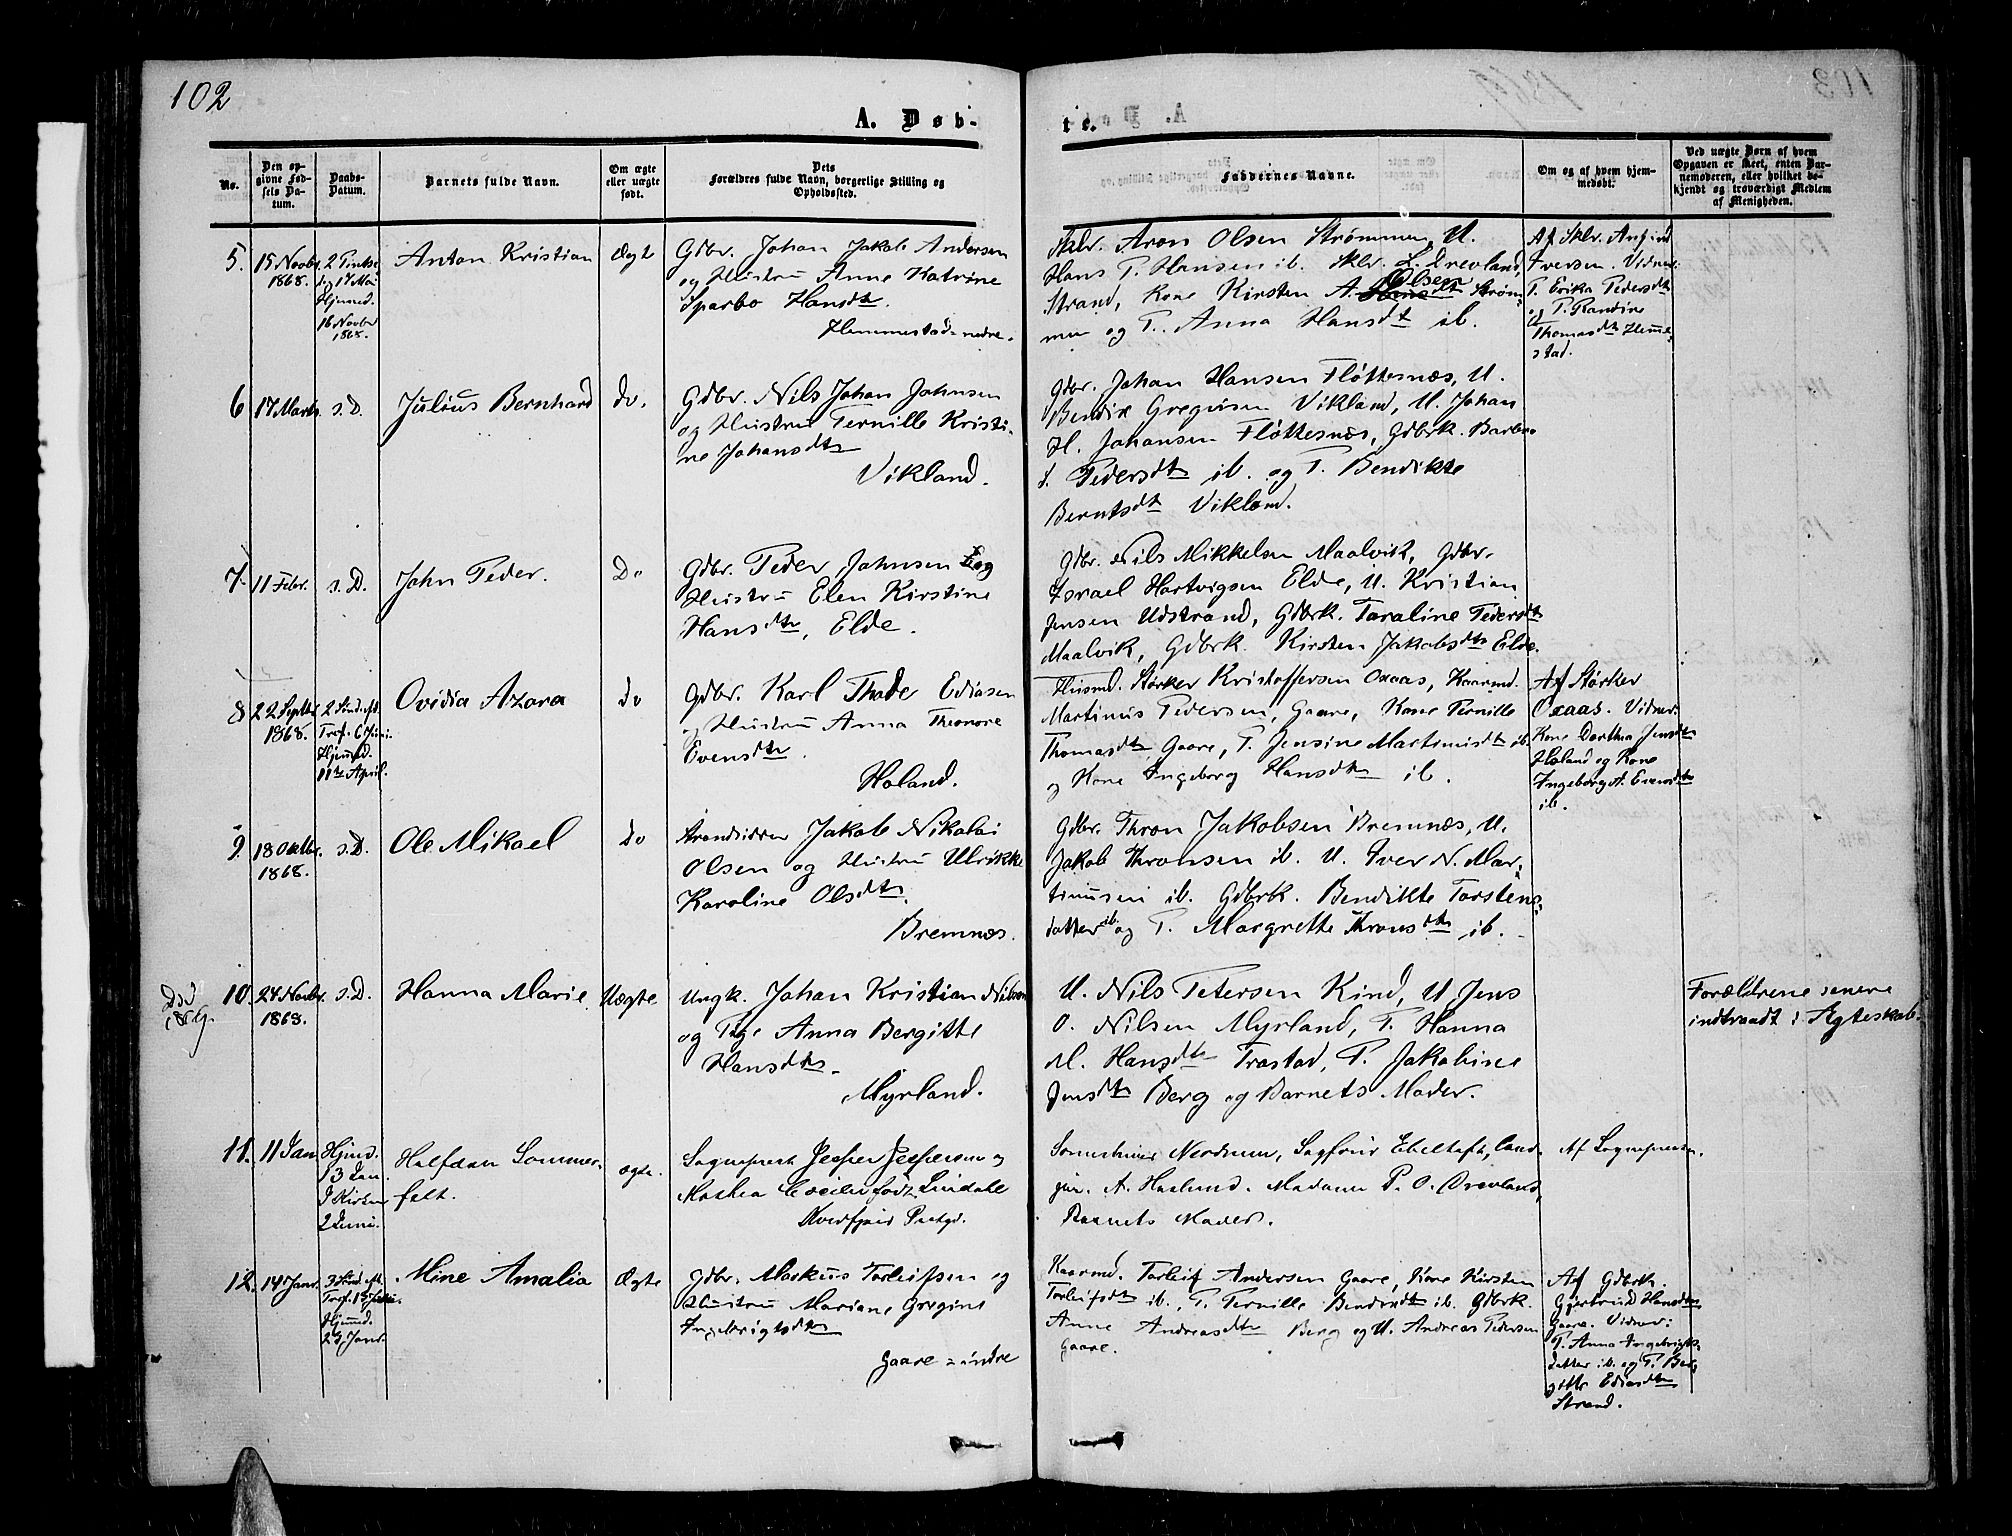 102
A. Døb-
te.
No.
Den op-
givne Fød-
sels Da-
tum.
Daabs-
Datum.
Barnets fulde Navn.
Om ægte
eller uægte
født.
Dets
Forældres fulde Navn, borgerlige Stilling og
Opholdssted.
Faddernes Navne.
Om og af hvem hjem-
medøbt.
Ved uægte Børn af hvem
Opgaven er skeet, enten Bar-
nemoderen, eller hvilket be-
kjendt og troværdigt Medlem
af Menigheden.
5.
15 Novbr.
1868.
2 Pintse
dag 17 Mai
Hjemmed.
16 Novbr
1868.
Anton Kristian
Ægt
Gdbr. Johan Jakob Andersen
og Hustru Anne Katrine
Sparbo Hansdtr.
Hemmestad nedre.
Sklr. Aron Olsen Strømmen, U.
Hans P. Hansen ib. Sklr. L. Drevland,
Strand, Kone Kirsten A. Olsen Strøm-
men og P. Anna Hansdtr ib.
Af Sklr. Anfind
Iversen. Vidner:
P. Erika Pedersdtr
og P. Randine
Thomasdtr Hemme-
stad.
6
17 Marts.
s.D.
Julius Bernhard
do.
Gdbr. Nils Johan Johnsen
og Hustru Pernille Kristi-
ne Johansdtr
Vikland.
Gdbr. Johan Hansen Fløttesnæs, U.
Bendix Gregusen Vikland, U. Johan
H. Johansen Fløttesnæs, Gdbrk. Barbro
J. Pedersdtr ib. og P. Bendikte
Berntsdtr Vikland.
7.
11 Febr.
s.D.
John Peder.
Do
Gdbr. Peder Johnsen og
Hustru Elen Kirstine
Hansdtr, Elde.
Gdbr. Nils Mikkelsen Maalvik, Gdbr.
Israel Hartvigsen Elde, U. Kristian
Jensen Udstrand, Gdbrk. Paraline Pedersdtr
Maalvik, Gdbrk. Kirsten Jakobsdtr Elde.
8
22 Septbr.
1868.
2 Sønd. eft.
Tref. 6 Juni.
Hjemmed.
11te April.
Ovidia Azora
do
Gdbr. Karl Thode Ediasen
og Hustru Anna Theonore
Evensdtr.
Holand.
Husmd. Størker Kristoffersen Oxaas, Kaarmd.
Martinus Pedersen, Gaare, Kone Pernille
Thomasdtr Gaare, P. Jensine Martinusdtr ib.
og Kone Ingeborg Hansdtr ib.
Af Størker
Oxaas. Vidner:
Kone Dorthea Jensdtr
Holand og Kone
Ingeborg A. Evensdtr
ib.
9.
18 Oktbr.
1868.
s.D.
Ole Mikael
do
Strandsidder Jakob Nikolai
Olsen og Hustru Ulrikke
Karoline Olsdtr.
Bremnæs.
Gdbr. Thron Jakobsen Bremnæs, U.
Jakob Thronsen ib. U. Iver N. Mar-
tinusen ib. Gdbrk. Bendikte Torstens-
datter ib. og P. Margrette Thronsdtr ib.
Død
10.
24 Novbr.
1868.
s.D.
Hanna Marie
Uægte.
Ungk. Johan Kristian Nilsen
og Pige Anna Bergitte
Hansdtr.
Myrland.
U. Nils Petersen Kind, U. Jens
O. Nilsen Myrland, P. Hanna
M. Hansdtr Trastad, P. Jakobine
Jensdtr Berg og Barnets Moder.
Forældrene senere
indtraadt i Ægteskab.
11.
11 Jan
Hjmd.
13 Jan.
I Kirken
2 Juni.
Halfdan Sommer-
felt.
ægte.
Sognepræst Jesper Jespersen og
Mathea Cecilie født Lindahl
Kvedfjord Prstgd.
Nordrum, Ebeltoft, Cand.
jur. A. Haslund. Madame P. O. Drevland,
Barnets Moder.
Af Sognepræsten.
12.
14 Janr.
3 Sønd. eft.
Tref. 13 Juni.
Hjemmed.
23 Janr.
Mine Amalia
Ægte
Gdbr. Markus Torleifsen og
Hustru Mariane Gregine
Ingebrigtsdtr
Gaare = indre
Kaarmd. Torleif Andersen Gaare, Kone Kirsten
Torleifsdtr ib., P. Pernille Bendixdtr ib. Gdbrk.
Anne Andreasdtr Berg og U. Andreas Pedersen
Gaare.
Af Gdbrk.
Gjertrud Hansdtr
Gaare. Vidner:
P. Anna Ingebrigts-
datter ib. og P. Ber-
gitte Ediasdtr
Strand.